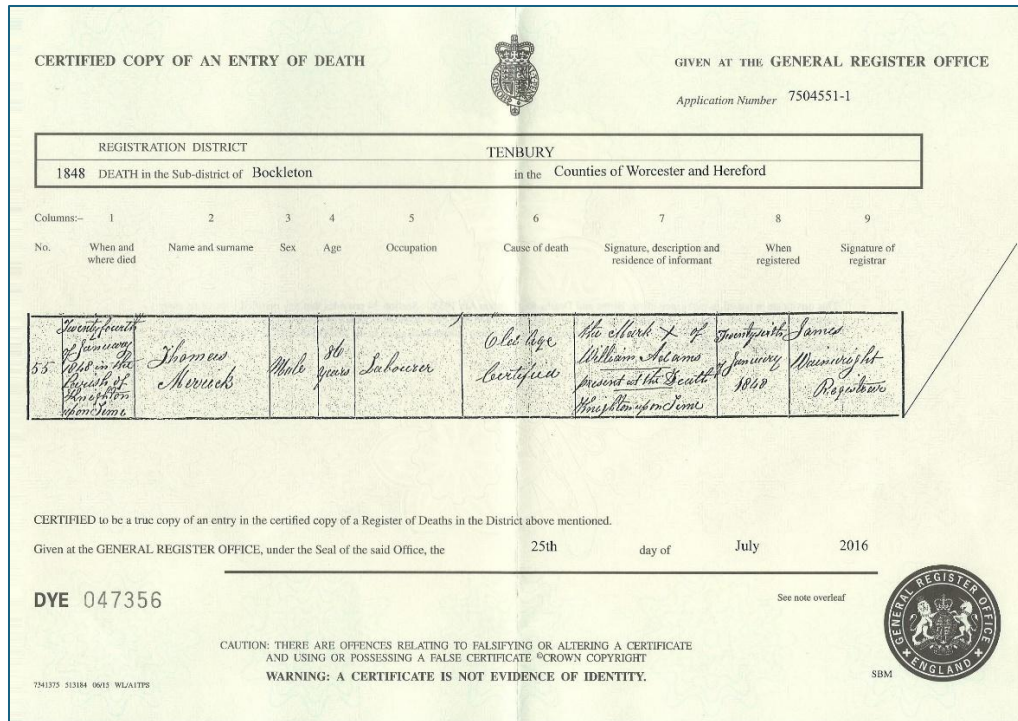 CERTIFIED COPY OF AN ENTRY OF DEATH
GIVEN AT THE GENERAL REGISTER OFFICE
Application Number 7504551-1
REGISTRATION DISTRICT TENBURY
1848 DEATH in the Sub-district of Bockleton in the Counties of Worcester and Hereford
Columns:- 1 2 3 4 5 6 7 8 9
No. When and where died Name and surname Sex Age Occupation Cause of death Signature, description and residence of informant When registered Signature of registrar
55
Twenty fourth
of January
1848 in the
Parish of
Knighton
upon Teme
Thomas
Merrick
Male
86
years
Labourer
Old Age
Certified
The Mark X of
William Adams
present at the Death
Knighton upon Teme
Twentysixth
of January
1848
James
Wainwright
Registrar
CERTIFIED to be a true copy of an entry in the certified copy of a Register of Deaths in the District above mentioned.
Given at the GENERAL REGISTER OFFICE, under the Seal of the said Office, the 25th day of July 2016
DYE 047356
See note overleaf
CAUTION: THERE ARE OFFENCES RELATING TO FALSIFYING OR ALTERING A CERTIFICATE
AND USING OR POSSESSING A FALSE CERTIFICATE ©CROWN COPYRIGHT
WARNING: A CERTIFICATE IS NOT EVIDENCE OF IDENTITY.
GENERAL REGISTER OFFICE
ENGLAND
SBM
7341375 513184 06/15 WL/A1TPS